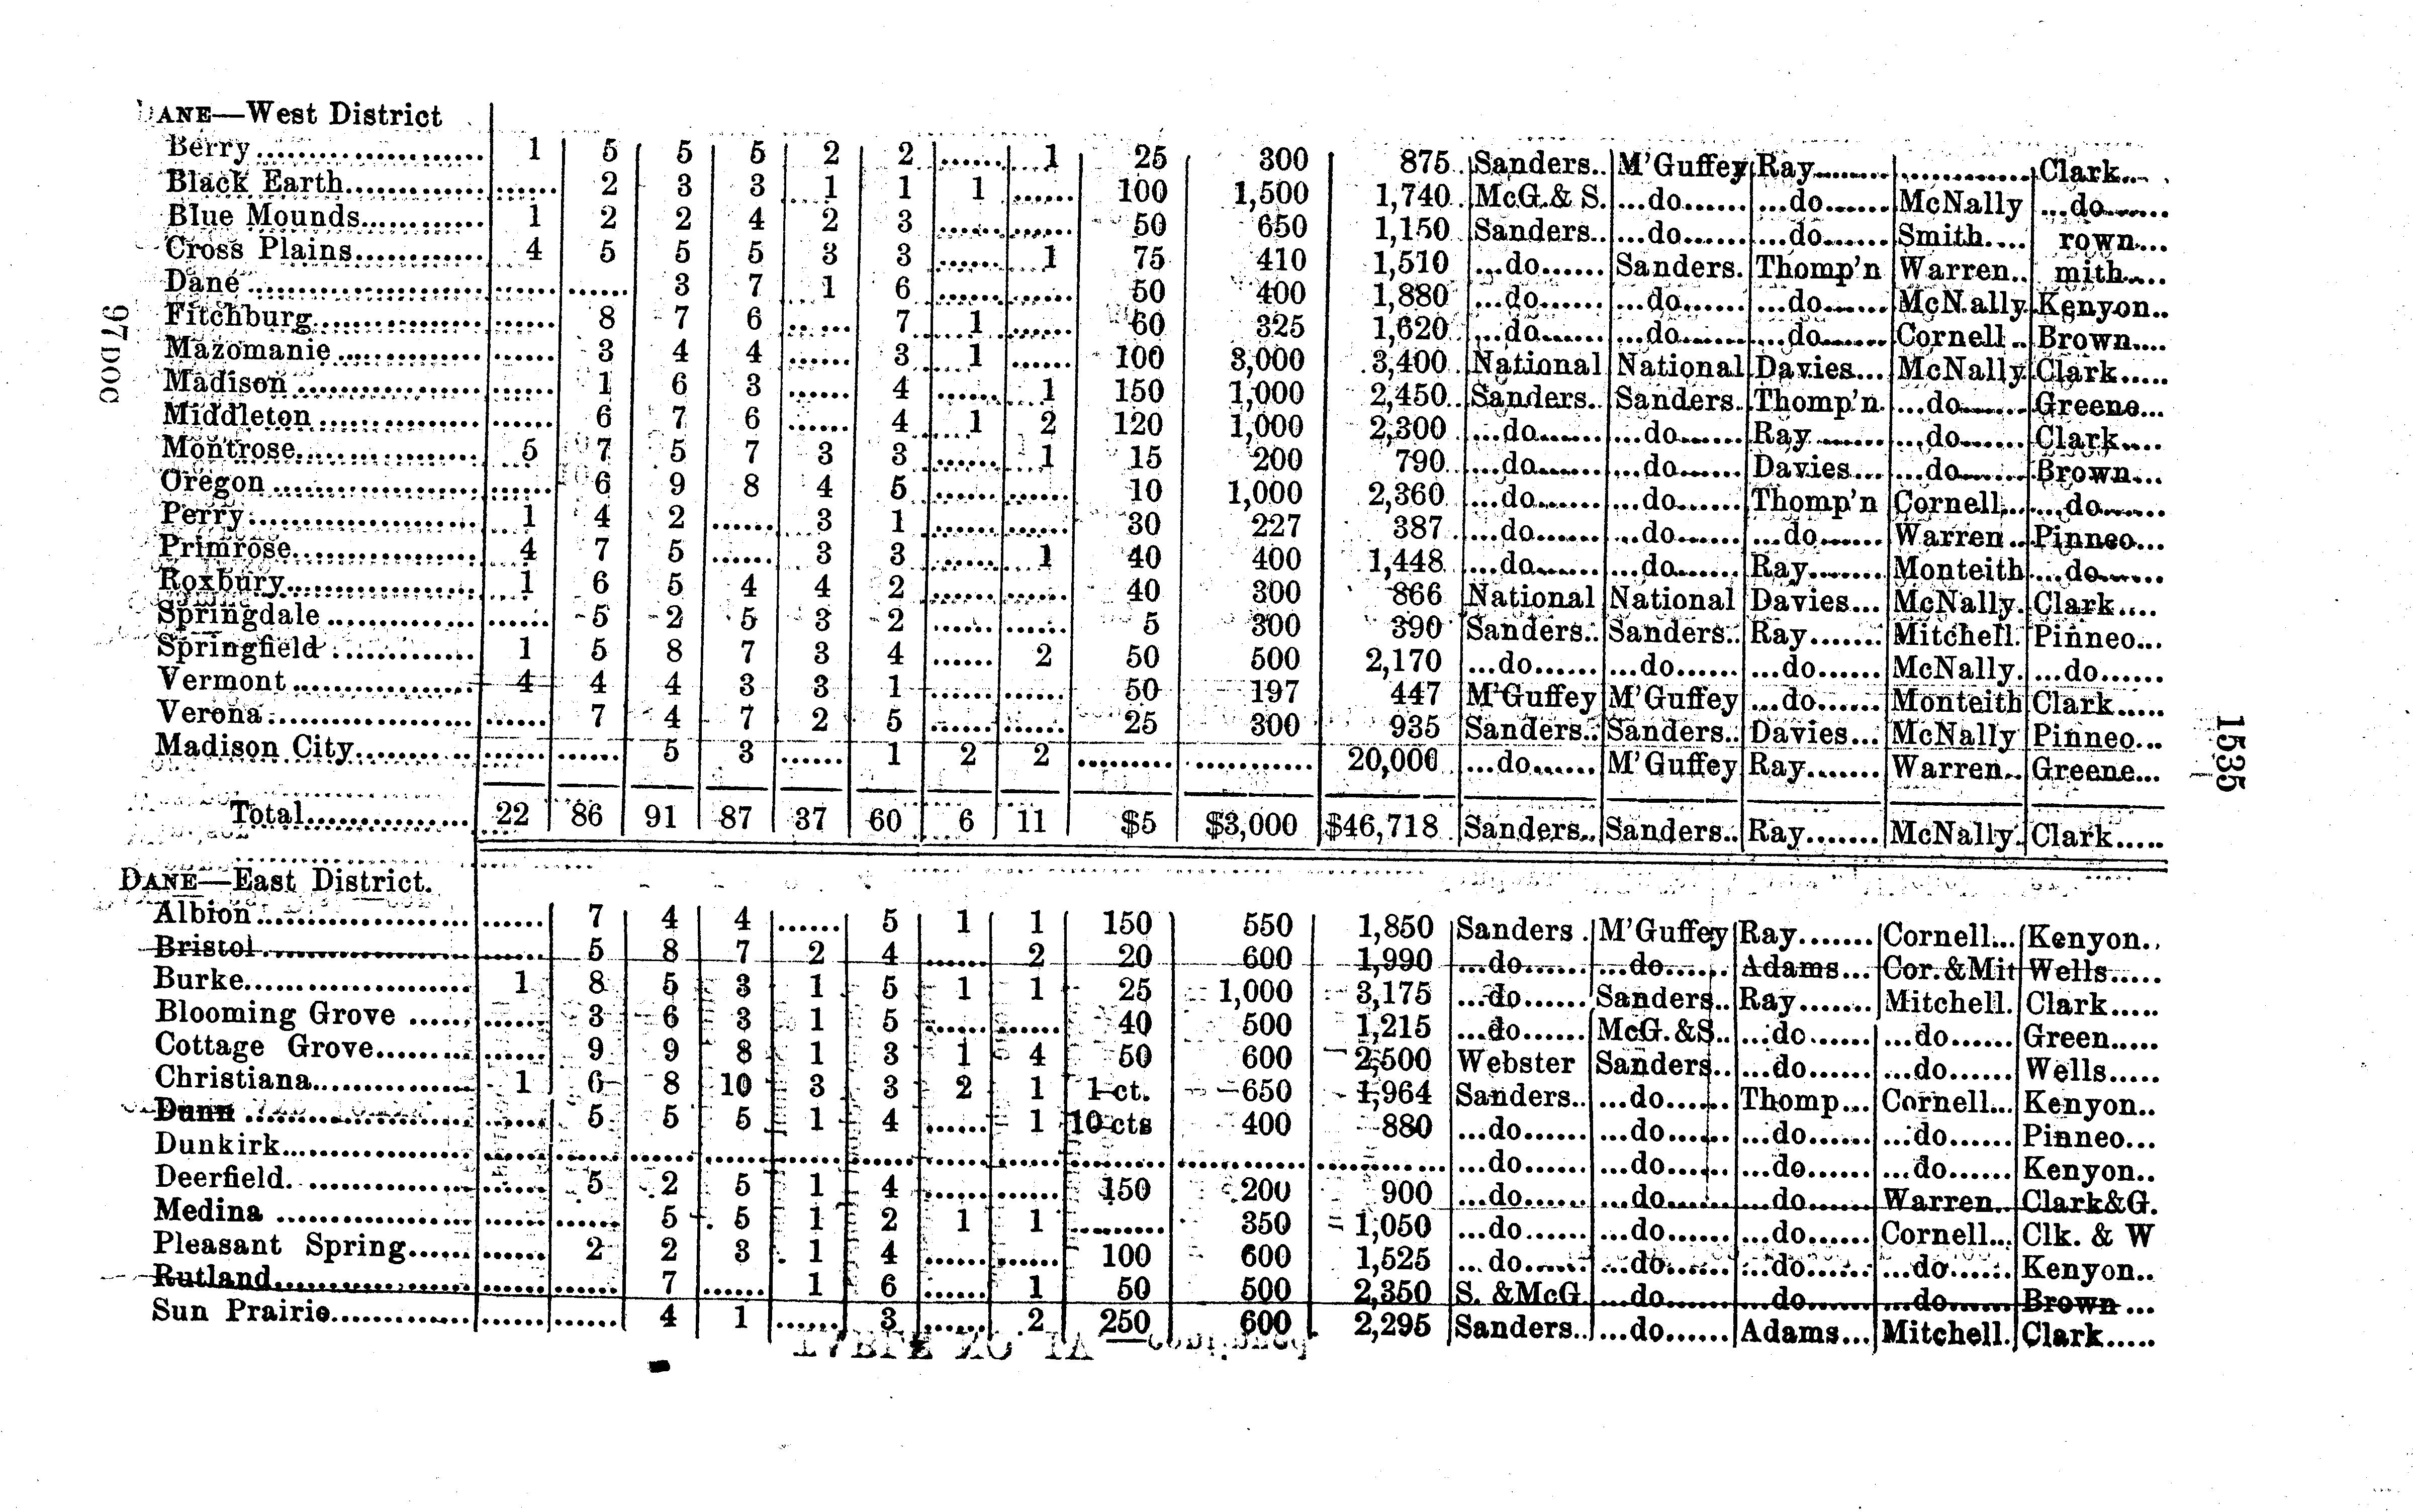 DANE—West District
Berry...................... 1 5 5 5 2 2 ...... 1 25 300 875 Sanders.. M'Guffey Ray....... ............ Clark...
Black Earth............. ...... 2 3 3 1 1 1 ...... 100 1,500 1,740 McG.& S. ...do...... ...do...... McNally ...do......
Blue Mounds............ 1 2 2 4 2 3 ...... ...... 50 650 1,150 Sanders.. ...do...... ...do...... Smith.... rown...
Cross Plains............. 4 5 5 5 3 3 ...... 1 75 410 1,510 ...do...... Sanders. Thomp'n Warren.. mith.....
Dane ...................... ...... ...... 3 7 1 6 ...... ...... 50 400 1,880 ...do...... ...do...... ...do...... McNally. Kenyon..
Fitchburg................. ...... 8 7 6 ...... 7 1 ...... 60 325 1,620 ...do...... ...do...... ...do...... Cornell .. Brown....
Mazomanie .............. ...... 3 4 4 ...... 3 1 ...... 100 3,000 3,400 National National Davies... McNally. Clark.....
Madison .................. ...... 1 6 3 ...... 4 ...... 1 150 1,000 2,450 Sanders.. Sanders.. Thomp'n. ...do...... Greene...
Middleton ................ ...... 6 7 6 ...... 4 1 2 120 1,000 2,300 ...do...... ...do...... Ray....... ...do...... Clark....
Montrose.................. 5 7 5 7 3 3 ...... 1 15 200 790 ...do...... ...do...... Davies... ...do...... Brown...
Oregon .................... ...... 6 9 8 4 5 ...... ...... 10 1,000 2,360 ...do...... ...do...... Thomp'n Cornell... ...do......
Perry....................... 1 4 2 ...... 3 1 ...... ...... 30 227 387 ...do...... ...do...... ...do...... Warren.. Pinneo...
Primrose.................. 4 7 5 ...... 3 3 ...... 1 40 400 1,448 ...do...... ...do...... Ray....... Monteith ...do......
Roxbury................... 1 6 5 4 4 2 ...... ...... 40 300 866 National National Davies... McNally. Clark....
Springdale ............... ...... 5 2 5 3 2 ...... ...... 5 300 390 Sanders.. Sanders.. Ray....... Mitchell. Pinneo...
Springfield .............. 1 5 8 7 3 4 ...... 2 50 500 2,170 ...do...... ...do...... ...do...... McNally. ...do......
Vermont .................. 4 4 4 3 3 1 ...... ...... 50 197 447 M'Guffey M'Guffey ...do...... Monteith Clark.....
Verona..................... ...... 7 4 7 2 5 ...... ...... 25 300 935 Sanders.. Sanders.. Davies... McNally Pinneo...
Madison City............ ...... ...... 5 3 ...... 1 2 2 ......... ............ 20,000 ...do...... M'Guffey Ray....... Warren.. Greene...
Total................ 22 86 91 87 37 60 6 11 $5 $3,000 $46,718 Sanders.. Sanders.. Ray....... McNally. Clark.....
DANE—East District.
Albion ..................... ...... 7 4 4 ...... 5 1 1 150 550 1,850 Sanders . M'Guffey Ray....... Cornell... Kenyon..
Bristol..................... ...... 5 8 7 2 4 ...... 2 20 600 1,990 ...do...... ...do...... Adams... Cor.&Mit Wells.....
Burke...................... 1 8 5 3 1 5 1 1 25 1,000 3,175 ...do...... Sanders.. Ray....... Mitchell. Clark.....
Blooming Grove ...... ...... 3 6 3 1 5 ...... ...... 40 500 1,215 ...do...... McG. &S.. ...do...... ...do...... Green.....
Cottage Grove.......... ...... 9 9 8 1 3 1 4 50 600 2,500 Webster Sanders.. ...do...... ...do...... Wells.....
Christiana................ 1 6 8 10 3 3 2 1 1 ct. 650 1,964 Sanders.. ...do...... Thomp... Cornell... Kenyon..
Dunn ...................... ...... 5 5 5 1 4 ...... 1 10 cts 400 880 ...do...... ...do...... ...do...... ...do...... Pinneo...
Dunkirk................... ...... ...... ...... ...... ...... ...... ...... ...... ......... ............ ............ ...do...... ...do...... ...do...... ...do...... Kenyon..
Deerfield. ................ ...... 5 2 5 1 4 ...... ...... 150 200 900 ...do...... ...do...... ...do...... Warren.. Clark&G.
Medina ................... ...... ...... 5 5 1 2 1 1 ......... 350 1,050 ...do...... ...do...... ...do...... Cornell... Clk. & W
Pleasant Spring...... ...... 2 2 3 1 4 ...... ...... 100 600 1,525 ...do...... ...do...... ...do...... ...do...... Kenyon..
Rutland................... ...... ...... 7 ...... 1 6 ...... 1 50 500 2,350 S. &McG. ...do...... ...do...... ...do...... Brown ...
Sun Prairie.............. ...... ...... 4 1 ...... 3 ...... 2 250 600 2,295 Sanders.. ...do...... Adams... Mitchell. Clark.....
97DOC
1535